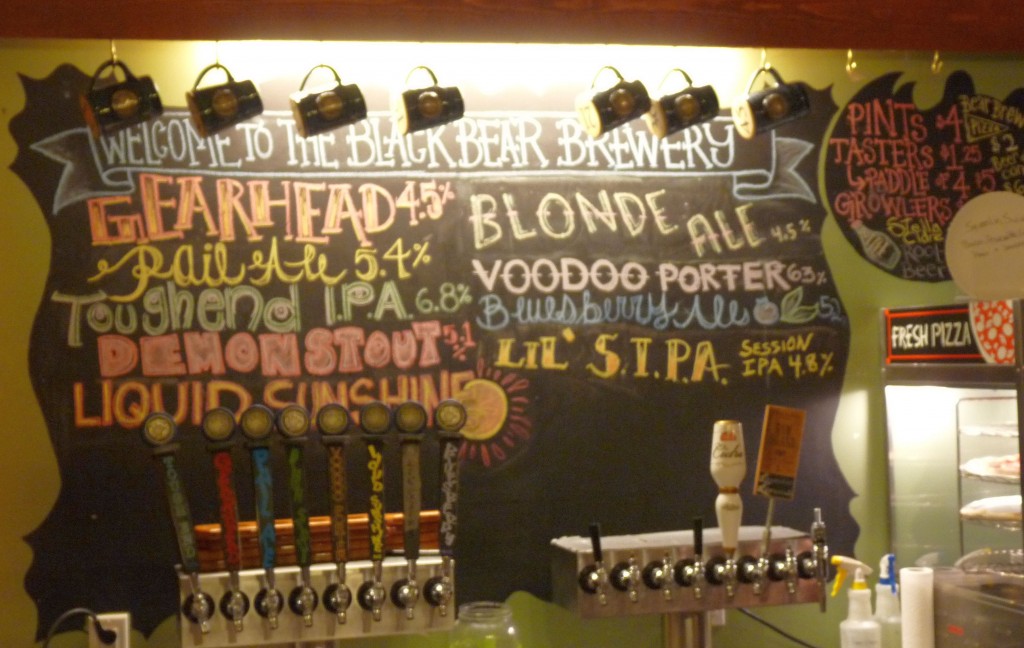 WELCOME TO THE BLACK BEAR BREWERY
GEARHEAD 4.5%
Pail Ale 5.4%
Toughend I.P.A. 6.8%
DEMON STOUT 5.1%
LIQUID SUNSHINE
BLONDE ALE 4.5%
VOODOO PORTER 6.3%
Bluesberry Ale 5.2
LIL' S.I.P.A. SESSION IPA 4.8%
PINTS $4
TASTERS $1.25
PADDLE $
GROWLERS $
Root
Beer
BEAR BREW
PIZZA
$2
FRESH PIZZA